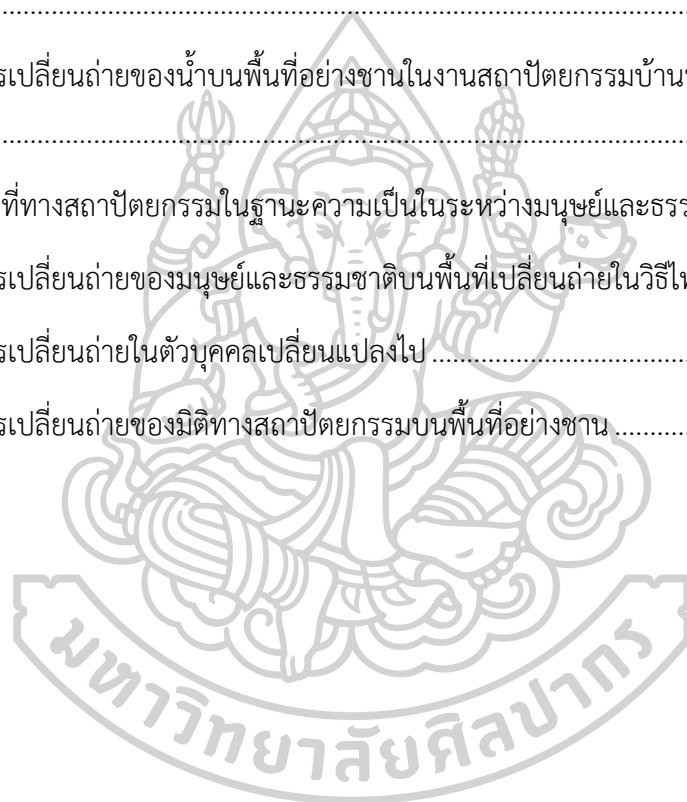 ................................................................................................
รเปลี่ยนถ่ายของน้ำบนพื้นที่อย่างชานในงานสถาปัตยกรรมบ้าน
................................................................................................
ที่ทางสถาปัตยกรรมในฐานะความเป็นในระหว่างมนุษย์และธรร
รเปลี่ยนถ่ายของมนุษย์และธรรมชาติบนพื้นที่เปลี่ยนถ่ายในวิธีไ
รเปลี่ยนถ่ายในตัวบุคคลเปลี่ยนแปลงไป ....................................
รเปลี่ยนถ่ายของมิติทางสถาปัตยกรรมบนพื้นที่อย่างชาน ..........
มหาวิทยาลัยศิลปากร